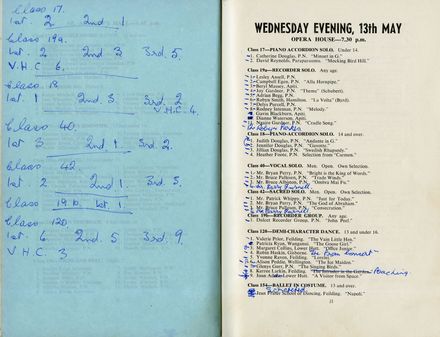 Class 17.
1st. 2 2nd 1
Class 19a.
1st. 2 2nd 3 3rd 5.
V.H.C 6.
Class 18
1st. 1 2nd 3. 3rd 2.
V.H.C 4
Class 40.
1st. 3 2nd 1 3rd. 2.
Class 42.
1st. 2 2nd 1 3rd. 5.
Class 19b. 1st. 1.
Class 120
1st. 6. 2nd. 5 3rd. 9.
V.H.C. 3
WEDNESDAY EVENING, 13th MAY
OPERA HOUSE—7.30 p.m.
Class 17—PIANO ACCORDION SOLO. Under 14.
1. Catherine Douglas, P.N. "Minuet in G."
2. David Reynolds, Paraparaumu. "Mocking Bird Hill."
Class 19a—RECORDER SOLO. Any age.
1. Lesley Ansell, P.N.
2. Campbell Egen, P.N. "Alla Hornpipe."
3. Beryl Massey, Apiti.
4. Jay Gardner, P.N. "Theme" (Schubert).
5. Adrian Begg, P.N.
6. Robyn Smith, Hamilton. "La Volta" (Byrd).
7. Delys Purcell, P.N.
8. Rodney Intemann, P.N. "Melody."
9. Gavin Blackburn, Apiti.
10. Dianna Waterson, Apiti.
11. Ngaire Gardner, P.N. "Cradle Song."
Class 18—PIANO-ACCORDION SOLO. 14 and over.
1. Judith Douglas, P.N. "Andante in G."
2. Jennifer Douglas, P.N. "Gavotte."
3. Jillian Douglas, P.N. "Swedish Rhapsody."
4. Heather Foote, P.N. Selection from "Carmen."
Class 40—VOCAL SOLO. Men. Open. Own Selection.
1. Mr. Bryan Perry, P.N. "Bright is the King of Words."
2. Mr. Bruce Pulleson, P.N. "Trade Winds."
3. Mr. Bruce Albiston, P.N. "Ombra Mai Fu."
Class 42—SACRED SOLO. Men. Open. Own Selection.
1. Mr. Patrick Whippy, P.N. "Just for Today."
2. Mr. Bryan Perry, P.N. "The God of Abraham."
Class 19b—RECORDER GROUP. Any age.
1. Dolcet Recorder Group, P.N. "John Peel."
Class 120—DEMI-CHARACTER DANCE. 13 and under 16.
1. Valerie Prior, Feilding. "The Vain Little Hen."
2. Patricia Ryan, Wanganui. "The Goose Girl."
3. Margaret Collins, Lower Hutt. "Office Junior."
4. Robin Haskin, Gisborne.
5. Yvonne Raven, Feilding. "Lorelei."
6. Alison Peddie, Wellington. "The Ice Maiden."
7. Glenys Guer, P.N. "The Singing Birds."
8. Kerren Larkin, Feilding. "The Intruder in the Garden." Poaching
Class 154—BALLET IN COSTUME. 13 and over.
Scratched
Jean Prater School of Dancing, Feilding. "Napoli."
11